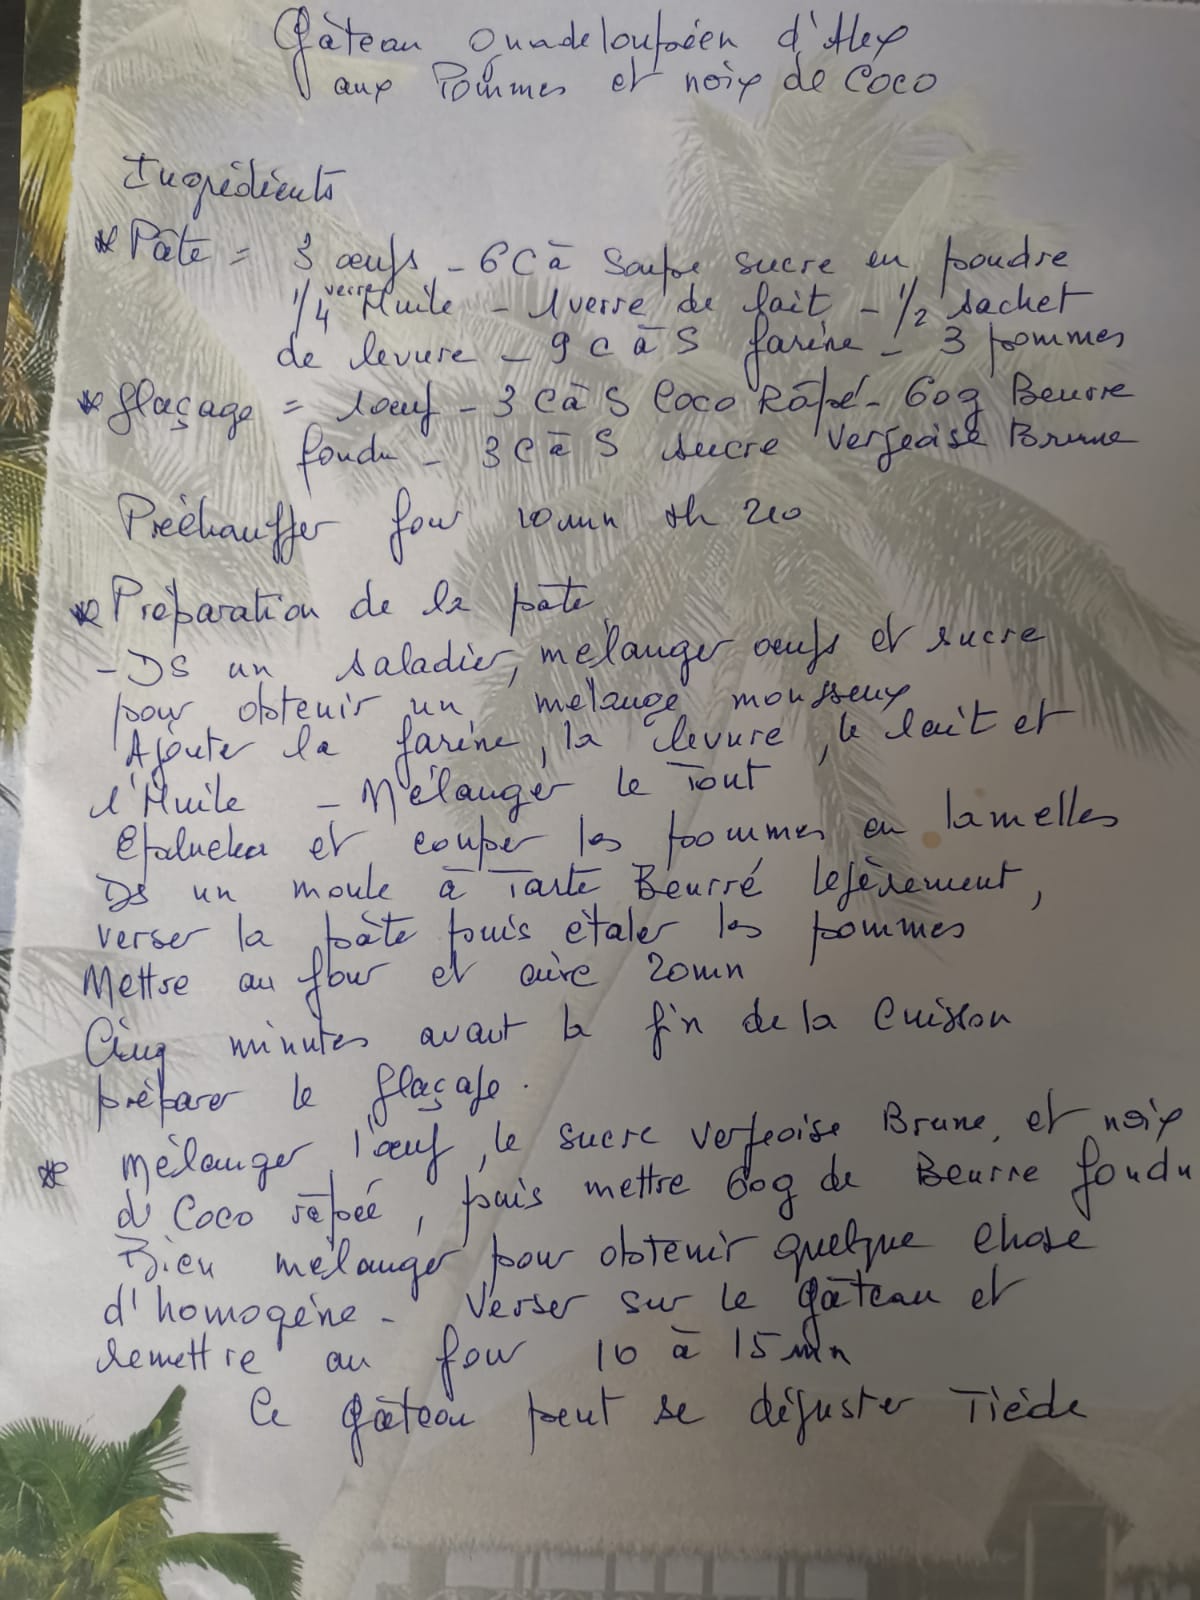 Gâteau Guadeloupéen d'Alex
aux Pommes et noix de Coco
Ingrédients
* Pâte = 3 œufs - 6 C à Soupe sucre en poudre
1/4 verre Huile - 1 verre de lait - 1/2 sachet
de levure - 9 C à S farine - 3 pommes
* Glaçage = 1 œuf - 3 C à S Coco Râpé - 60g Beurre
fondu - 3 C à S sucre Vergeoise Brune
Préchauffer four 10 mn th 210
* Préparation de la pâte
- Ds un saladier, mélanger œufs et sucre
pour obtenir un mélange mousseux
Ajouter la farine, la levure, le lait et
l'Huile - Mélanger le Tout
Eplucher et couper les pommes en lamelles
Ds un moule à Tarte Beurré légèrement,
verser la pâte puis étaler les pommes
Mettre au four et cuire 20mn
Cinq minutes avant la fin de la Cuisson
préparer le glaçage.
* Mélanger l'œuf, le sucre vergeoise Brune, et noix
d Coco râpée, puis mettre 60g de Beurre fondu
Bien mélanger pour obtenir quelque chose
d'homogène - Verser sur le gâteau et
remettre au four 10 à 15 mn
Ce gâteau peut se déguster Tiède